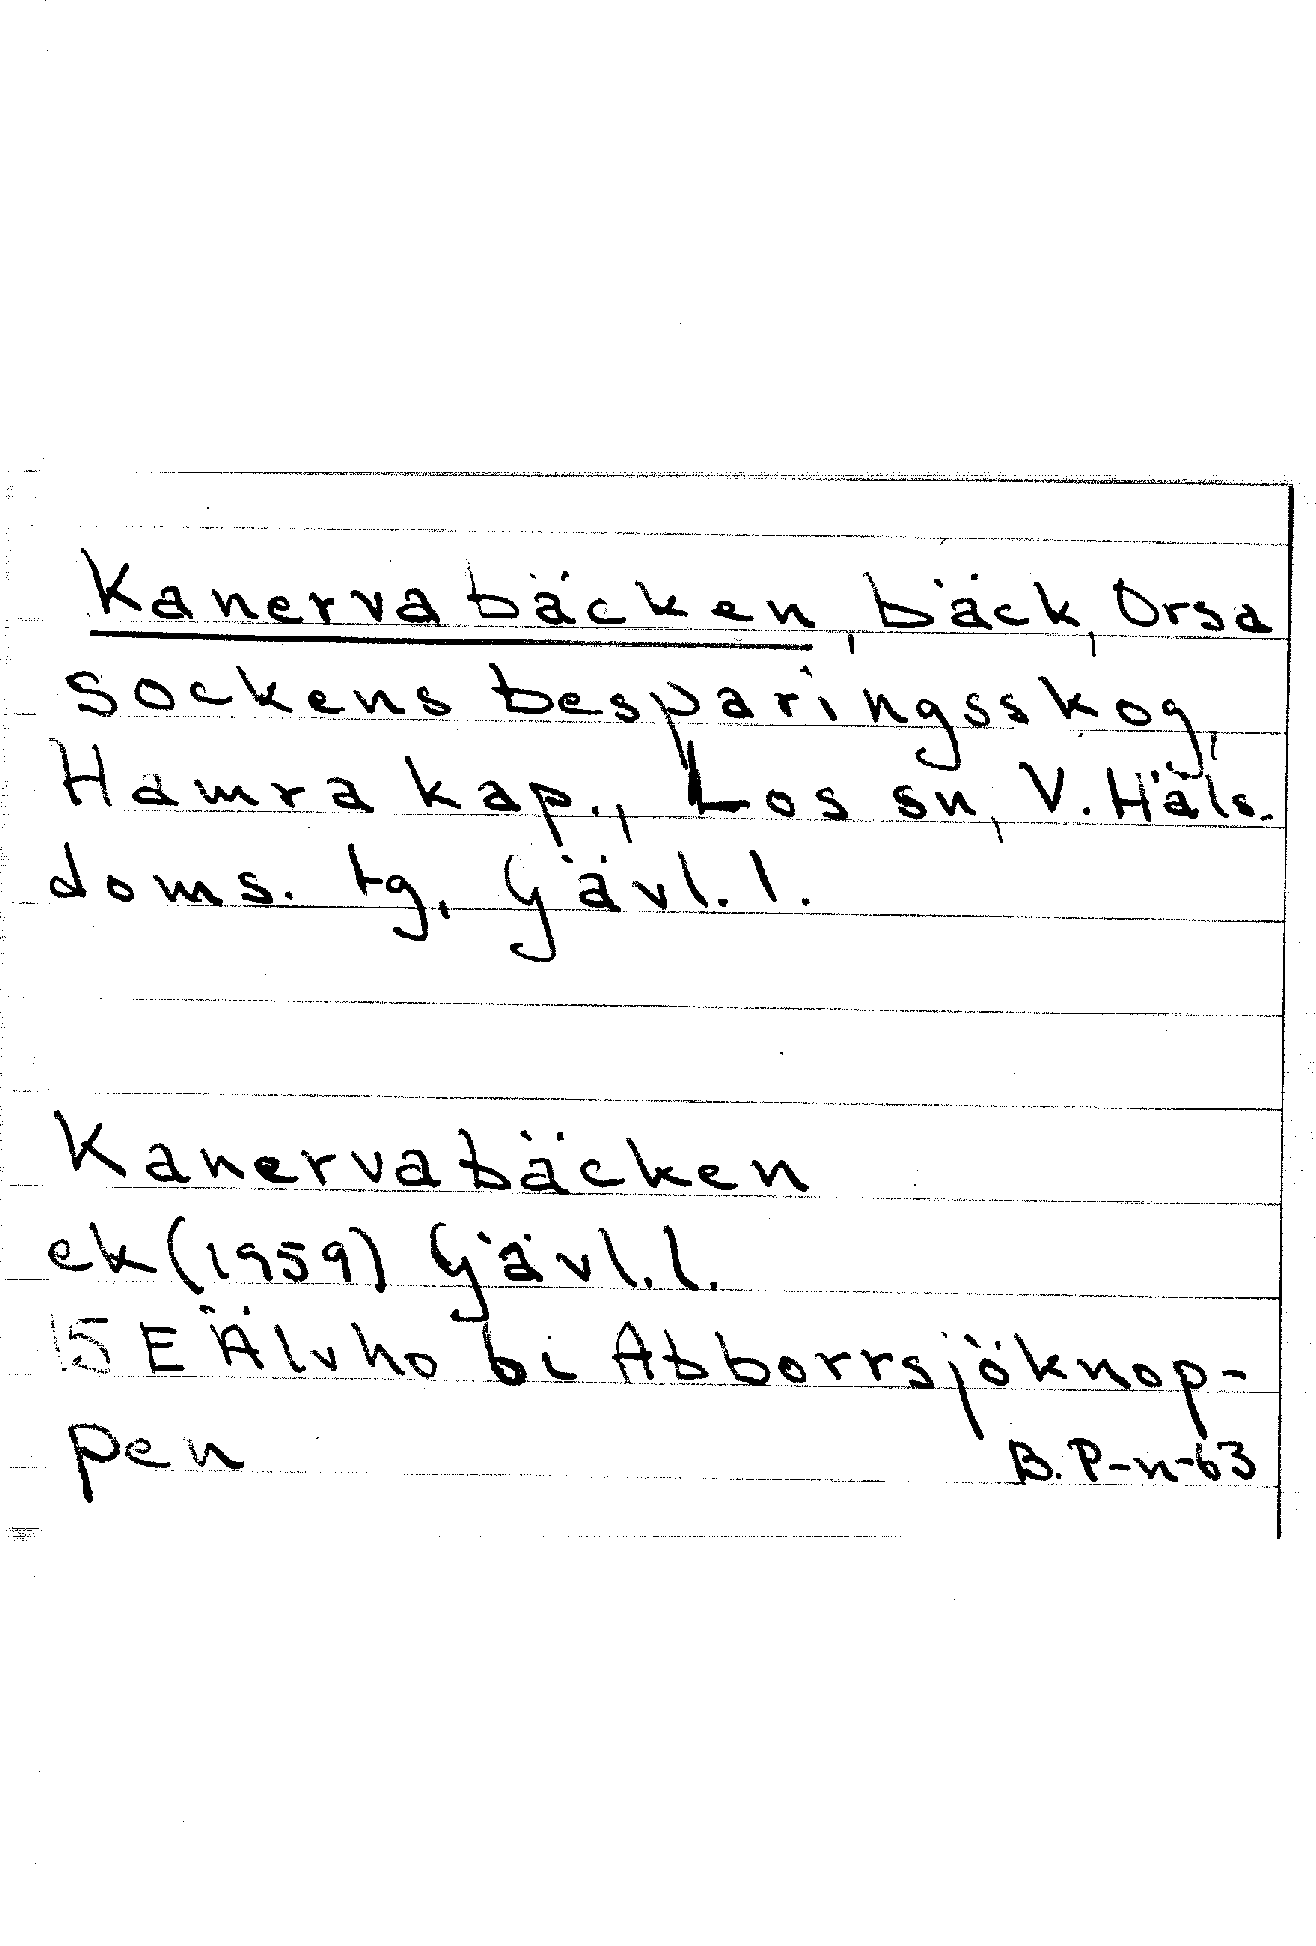 Kanervabäcken, bäck, Orsa
sockens besparingsskog,
Hamra kap., Los sn, V. Häls.
doms. tg, Gävl. l.
Kanervabäcken
ek (1959) Gävl. l.
15 E Älvho bi Abborrsjöknop-
pen
B. P-n-63